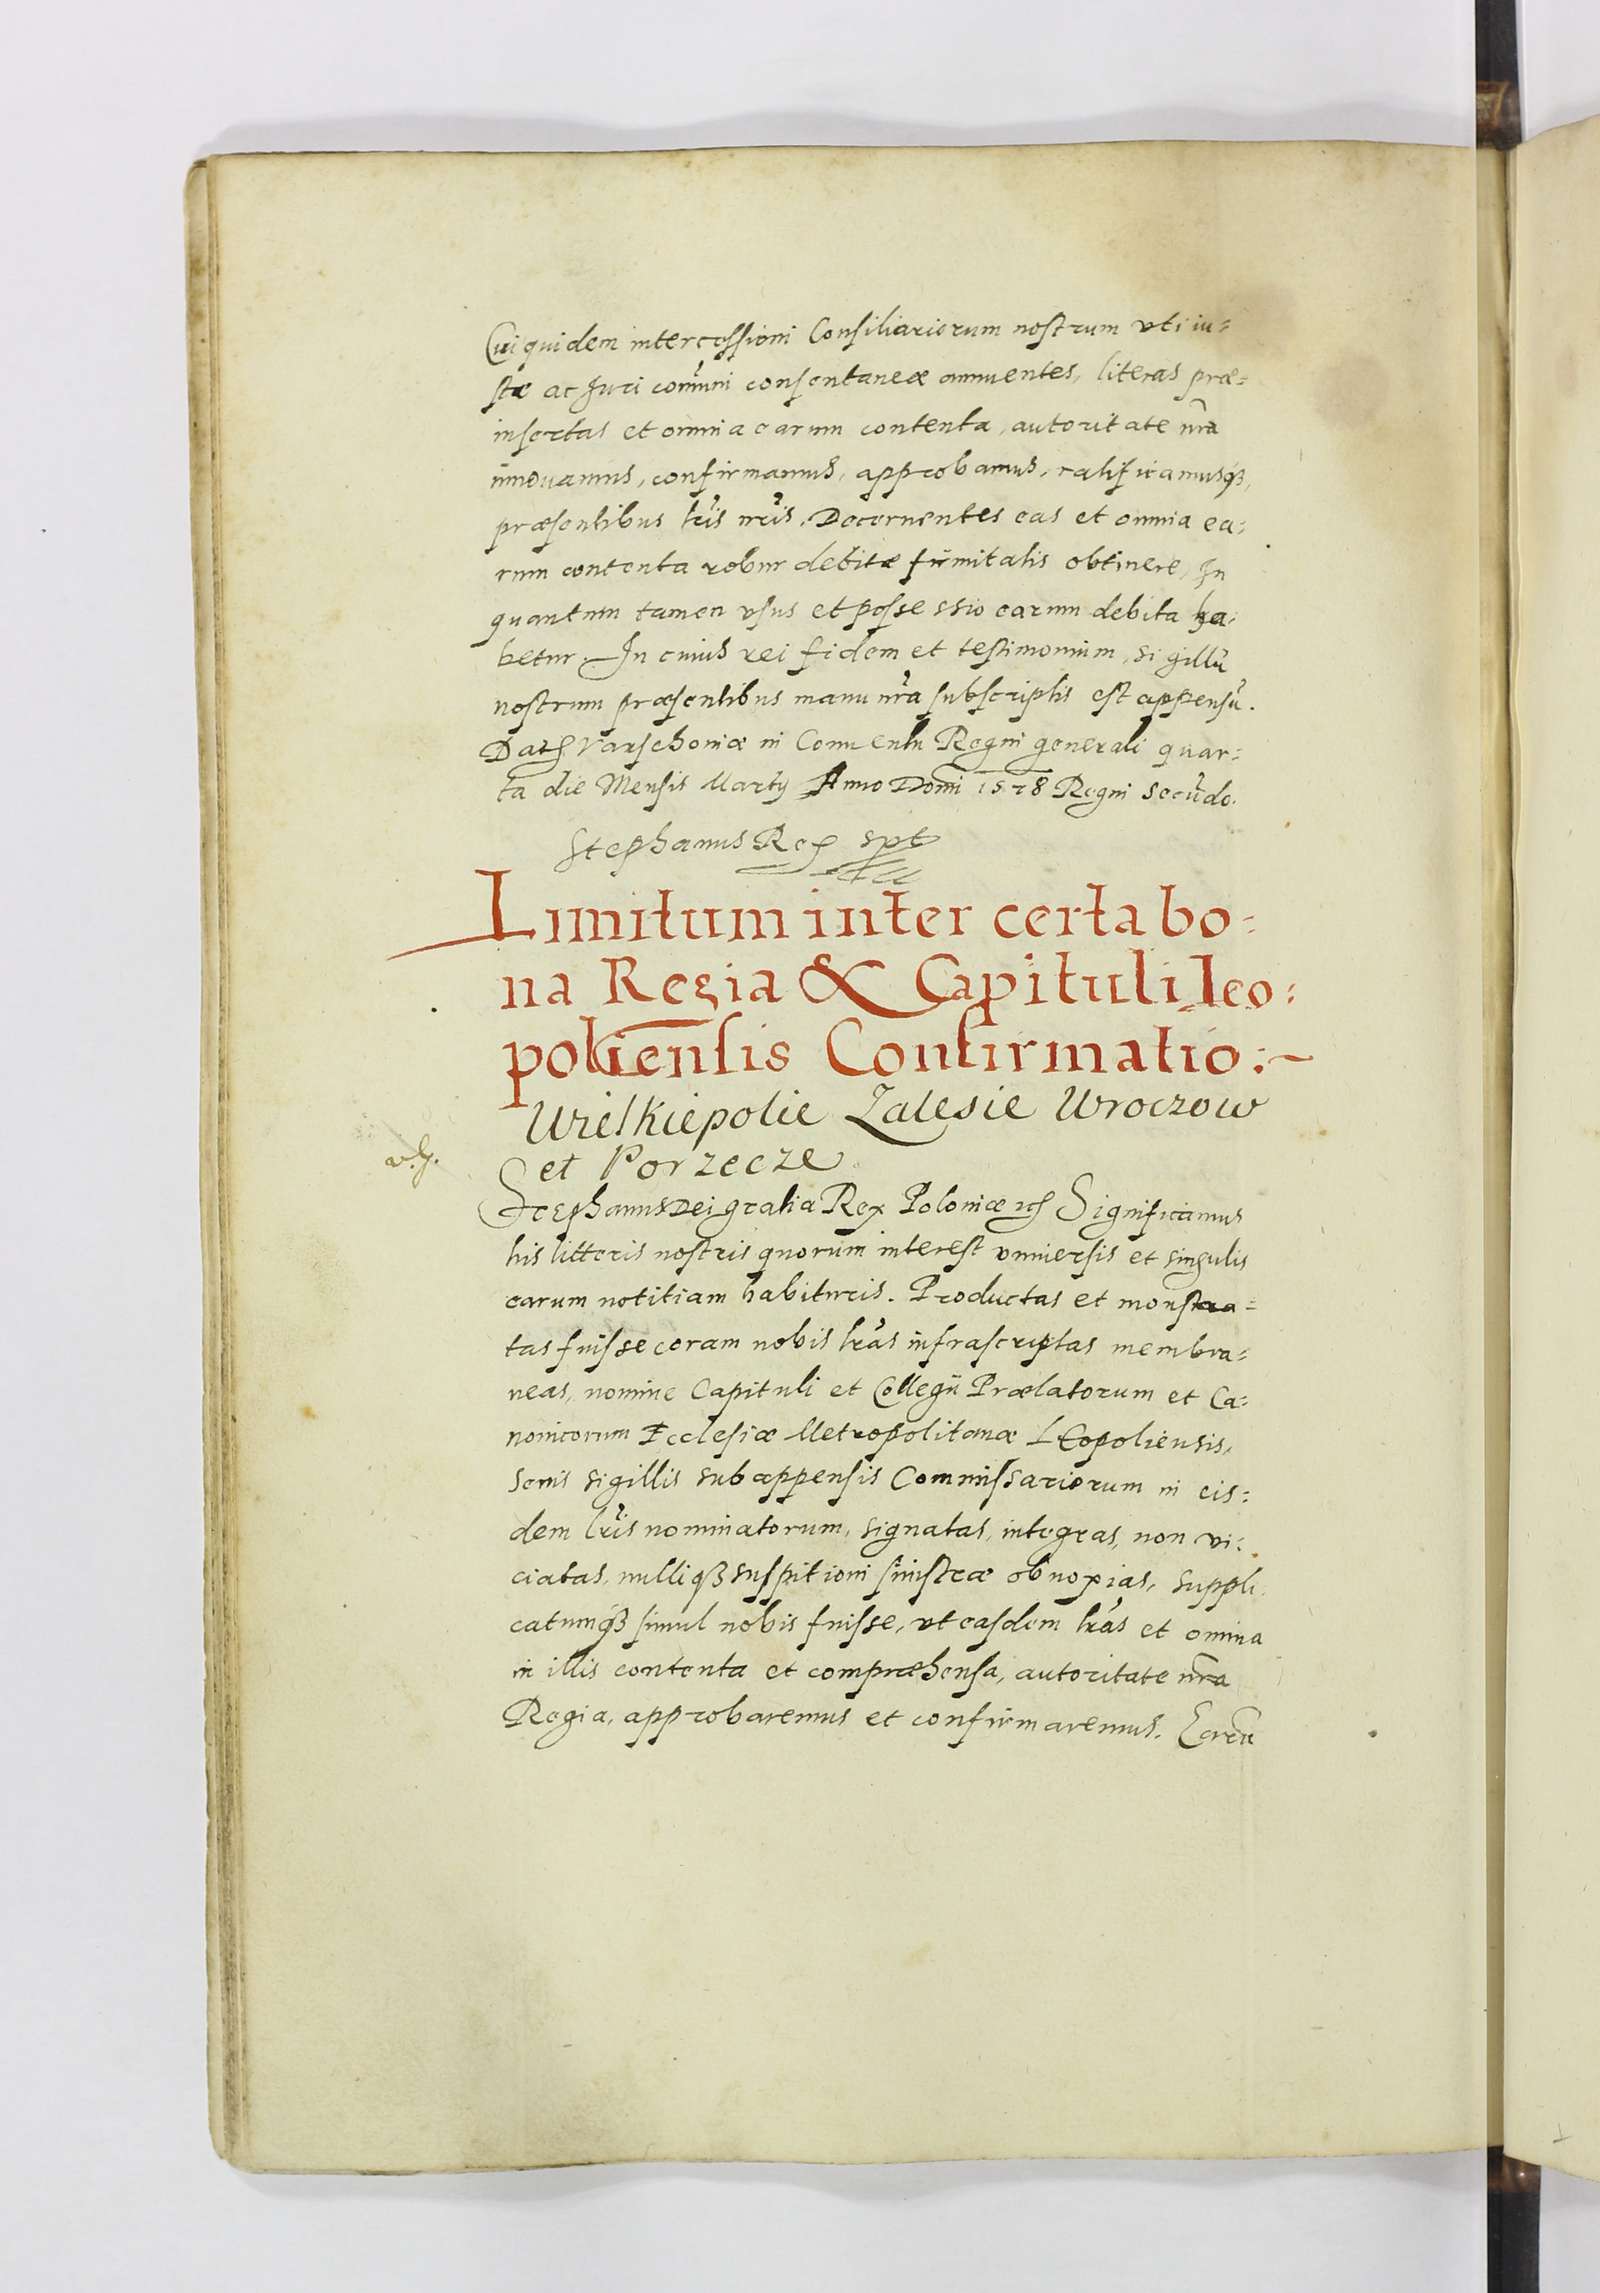 Cui quidem intercessioni Consiliariorum nostrum vti iu=
stæ ac Juri com̃uni consentaneæ annuentes, literas præ=
insertas et omnia earum contenta, autoritate nr̃a
innouamus, confirmamus, approbamus, ratificamusqȝ,
præsentibus lr̃is nr̃is. Decernentes eas et omnia ea=
rum contenta robur debitæ firmitatis obtinere, In
quantum tamen vsus et possessio earum debita ha=
betur. In cuius rei fidem et testimonium, sigillũ
nostrum præsentibus manu nr̃a subscriptis est appensũ.
Dat Varschoviæ in Conuentu Regni generali quar=
ta die Mensis Martÿ Anno Domi 1578 Regni secũdo.
Stephanus Rex spt
Limitum inter certa bo=
na Regia & Capituli leo=
poliensis Confirmatio:~
Wielkiepolie Zalesie Wroczow
et Porzecze
Stephanus Dei gratia Rex Poloniæ Significamus
his litteris nostris quorum interest vniuersis et singulis
earum notitiam habituris. Productas et monstra=
tas fuisse coram nobis lr̃as infrascriptas membra=
neas, nomine Capituli et Collegii Prælatorum et Ca=
nonicorum Ecclesiæ Metropolitanæ LEopoliensis,
Senis sigillis subappensis Commissariorum in eis=
dem lr̃is nominatorum, signatas, integras, non vi=
ciatas, nulliqȝ suspitioni sinistræ obnoxias, suppli
catumqȝ simul nobis fuisse, vt easdem lr̃as et omnia
in illis contenta et compræhensa, autoritate nr̃a
Regia, approbaremus et confirmaremus. Earũ